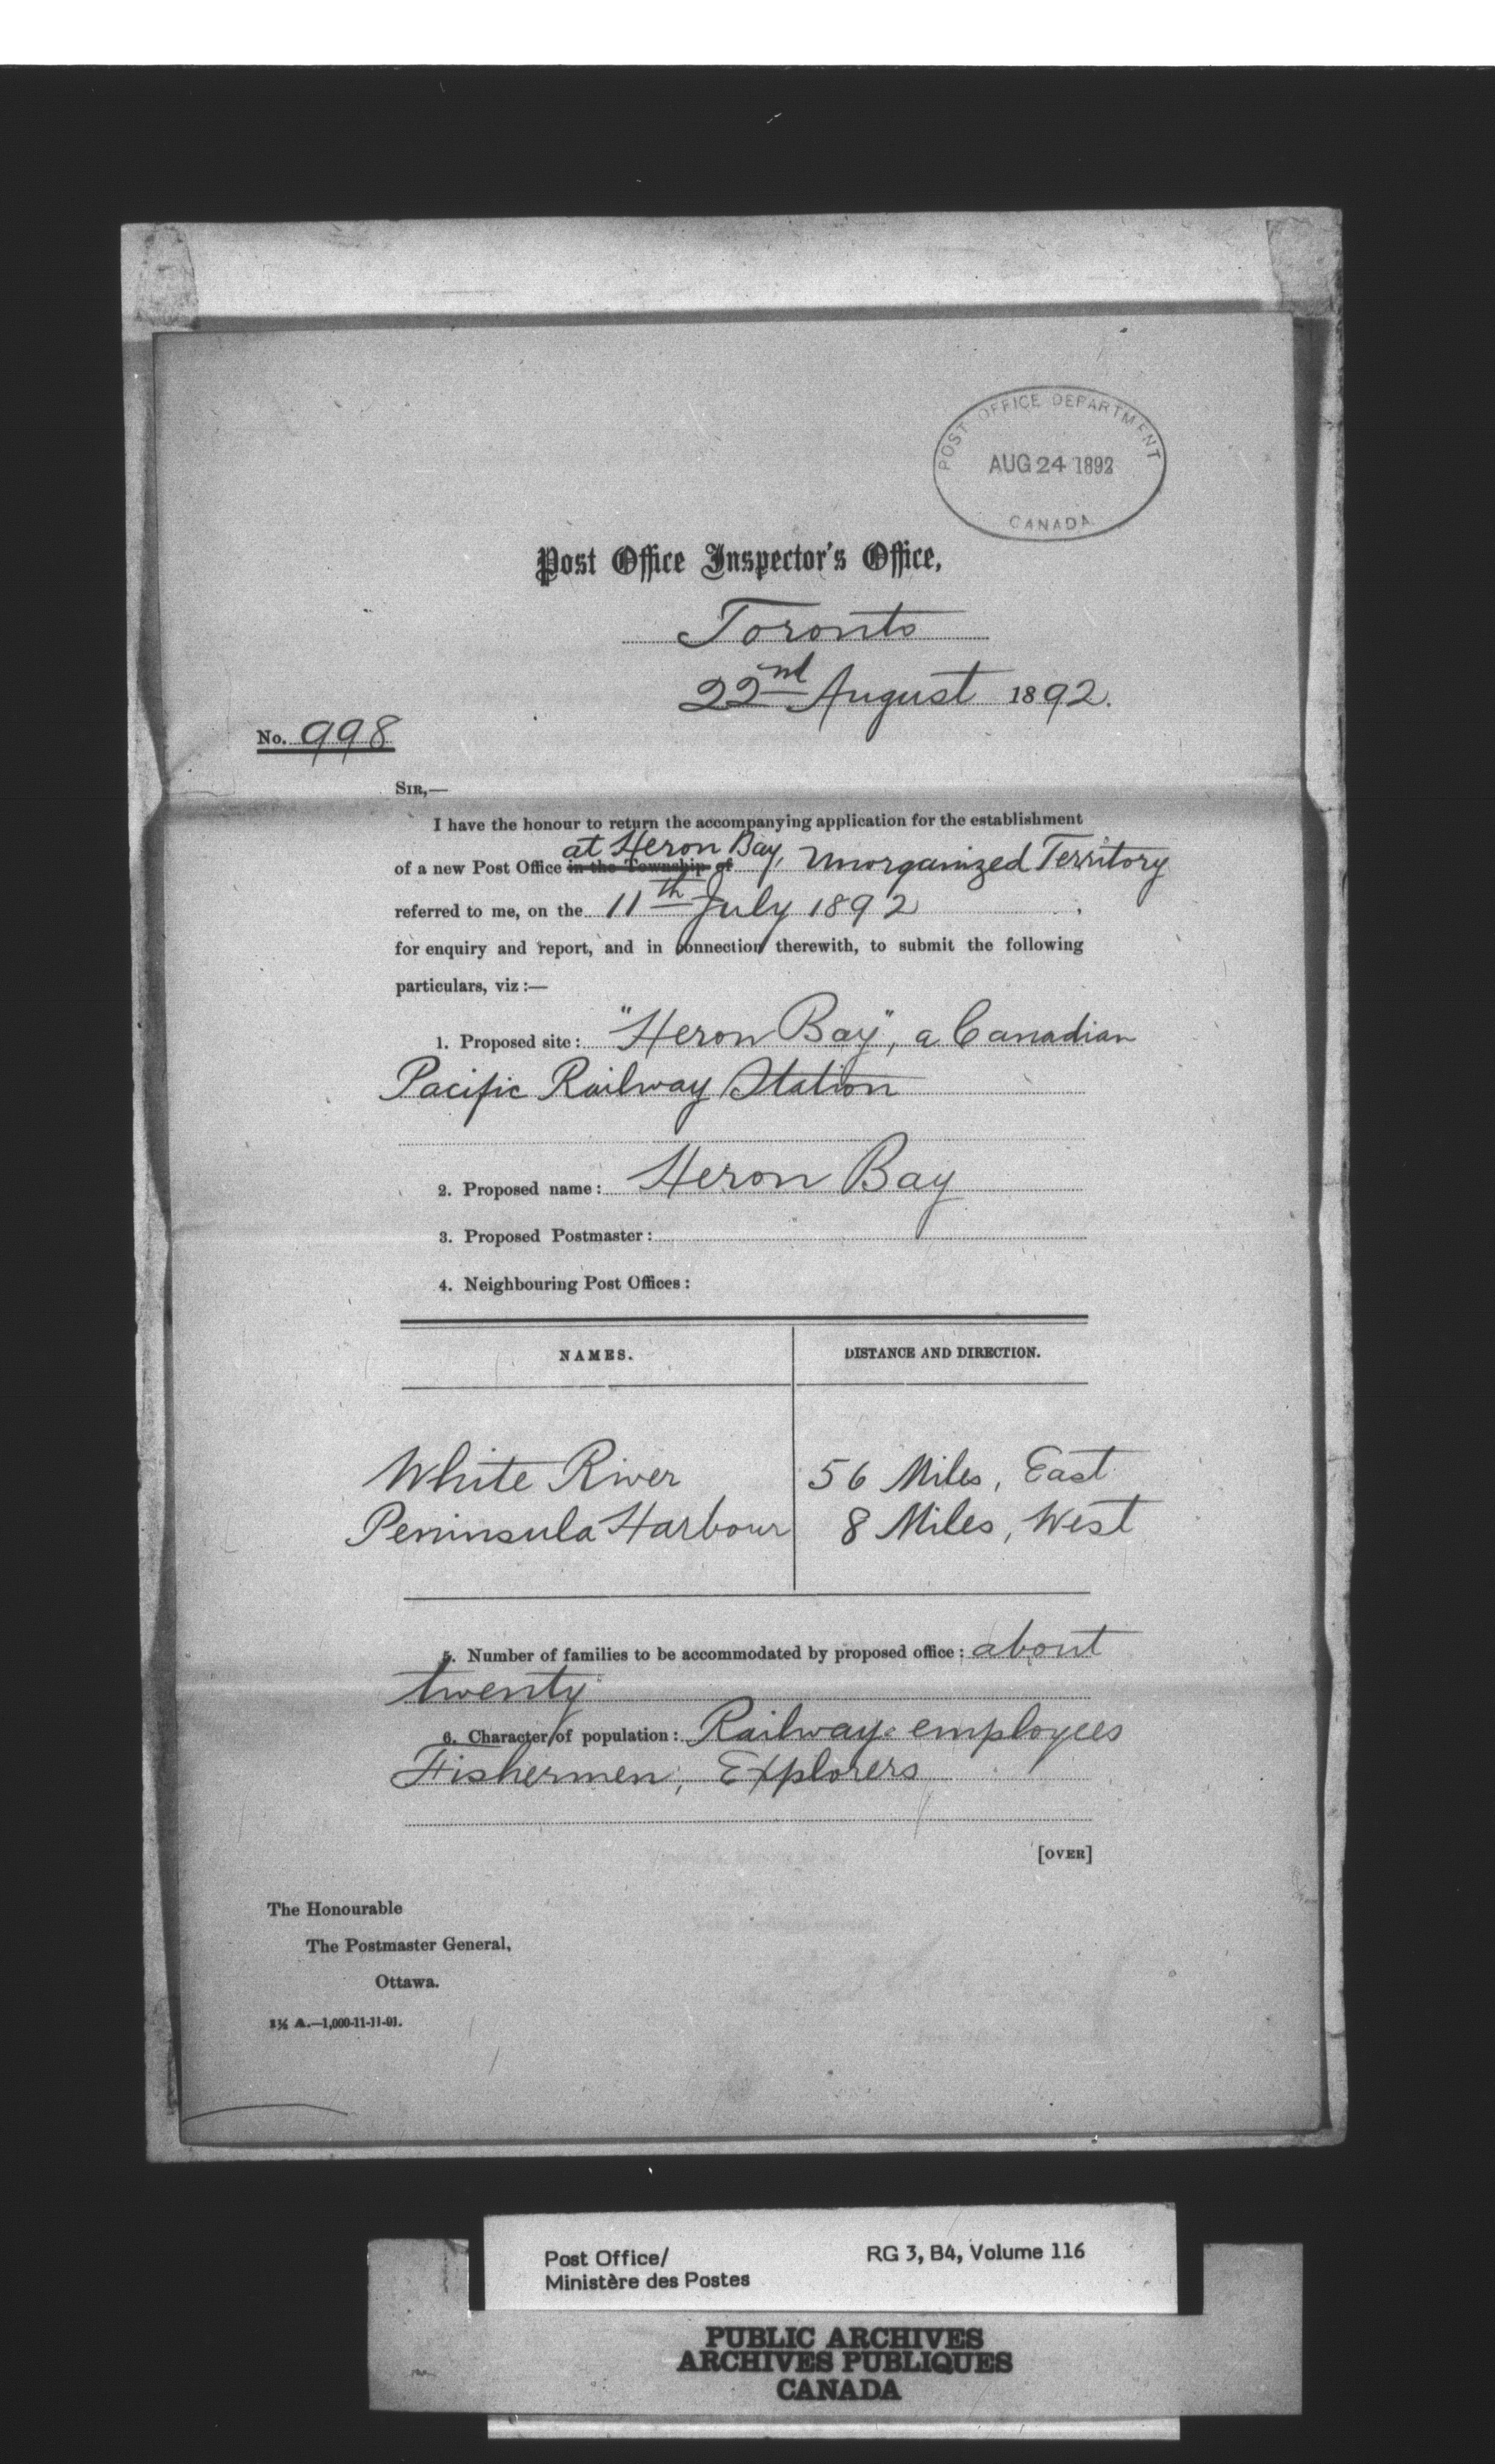 POST OFFICE DEPARTMENT
AUG 24 1892
CANADA
Post Office Inspector's Office,
Toronto
22nd August 1892.
No. 998
SIR,—
I have the honour to return the accompanying application for the establishment
at Heron Bay,
of a new Post Office in the Township of Unorganized Territory
referred to me, on the 11th July 1892,
for enquiry and report, and in connection therewith, to submit the following
particulars, viz :—
1. Proposed site : "Heron Bay", a Canadian
Pacific Railway Station
2. Proposed name : Heron Bay
3. Proposed Postmaster :
4. Neighbouring Post Offices :
NAMES. DISTANCE AND DIRECTION.
White River 56 Miles, East
Peninsula Harbour 8 Miles, West
5. Number of families to be accommodated by proposed office : about
twenty
6. Character of population : Railway employees
Fishermen, Explorers
[OVER]
The Honourable
The Postmaster General,
Ottawa.
A.—1,000-11-11-91.
Post Office/ RG 3, B4, Volume 116
Ministère des Postes
PUBLIC ARCHIVES
ARCHIVES PUBLIQUES
CANADA